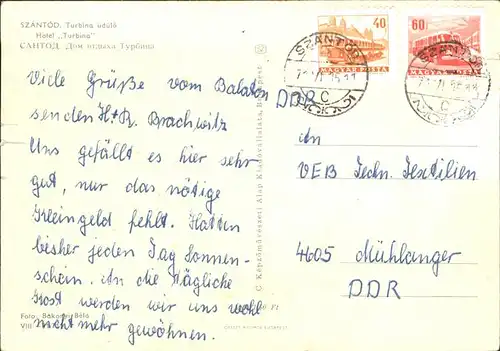 SZÁNTÓD. Turbina üdülő
Hotel „Turbina"
САНТОД. Дом отдыха Турбина
Viele Grüße vom Balaton
senden H+R. Brachwitz
Uns gefällt es hier sehr
gut, nur das nötige
Kleingeld fehlt. Hatten
bisher jeden Tag Sonnen-
schein. An die tägliche
Kost werden wir uns wohl
nicht mehr gewöhnen.
Foto: Bakonyi Béla
VIII
C. Képzőművészeti Alap Kiadóvállalata, Budapest
40
MAGYAR POSTA
60
MAGYAR POSTA
SZÁNTÓD
C
SZÁNTÓD
C
DDR
An
VEB Techn. Textilien
4605 Mühlanger
DDR